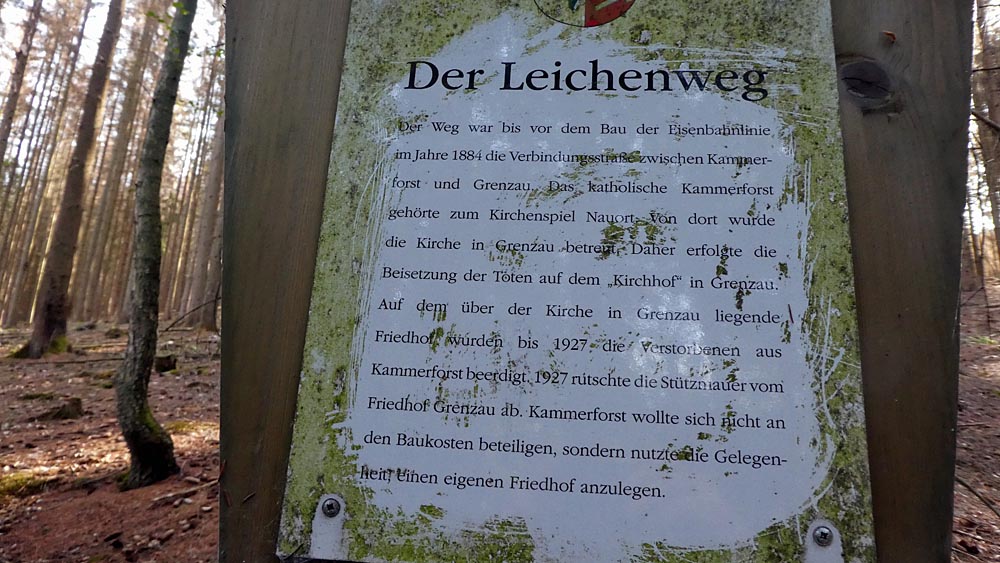 Der Leichenweg
Der Weg war bis vor dem Bau der Eisenbahnlinie
im Jahre 1884 die Verbindungsstraße zwischen Kammer-
forst und Grenzau. Das katholische Kammerforst
gehörte zum Kirchenspiel Nauort. Von dort wurde
die Kirche in Grenzau betreut. Daher erfolgte die
Beisetzung der Toten auf dem „Kirchhof“ in Grenzau.
Auf dem über der Kirche in Grenzau liegende
Friedhof wurden bis 1927 die Verstorbenen aus
Kammerforst beerdigt. 1927 rutschte die Stützmauer vom
Friedhof Grenzau ab. Kammerforst wollte sich nicht an
den Baukosten beteiligen, sondern nutzte die Gelegen-
heit, einen eigenen Friedhof anzulegen.